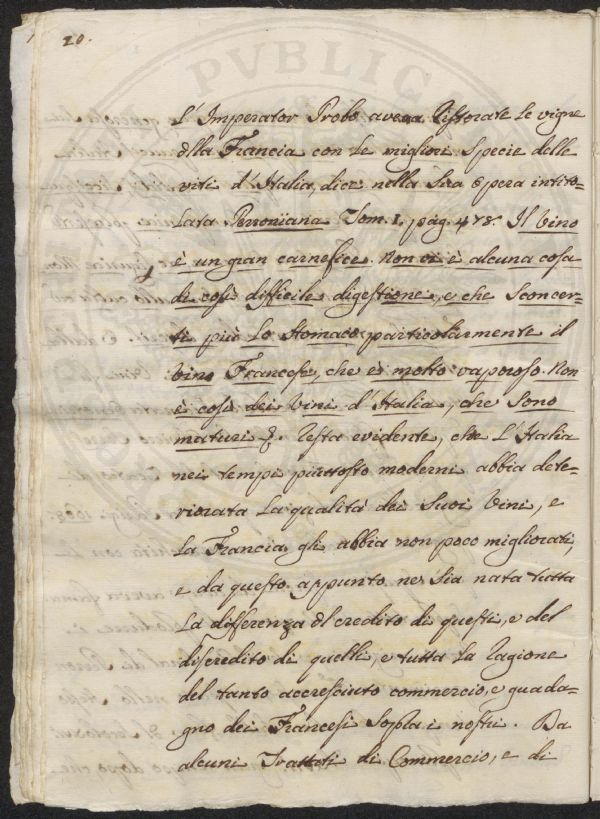 20.
L'Imperator Probo aveva ristorate le vigne
dlla Francia con le migliori Specie delle
viti d'Italia, dice nella Sua Opera intito=
lata Perroniana Tom. I. pag. 478. Il vino
è un gran carnefice. Non vi è alcuna cosa
di così difficile digestione, e che Sconcer=
ti più lo Stomaco particolarmente il
vino Francese, che è molto vaporoso. Non
è così dei vini d'Italia, che Sono
maturi &. resta evidente, che L'Italia
nei tempi piuttosto moderni abbia dete=
riorata La qualità dei Suoi Vini, e
La Francia gli abbia non poco migliorati,
e da questo appunto ne Sia nata tutta
La differenza dl credito di questi, e del
discredito di quelli, e tutta La ragione
del tanto accresciuto commercio, e guada=
gno dei Francesi Sopra i nostri. Da
alcuni Trattati di Commercio, e di